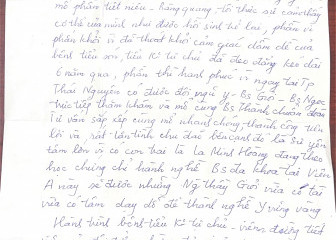 mổ phần tiết niệu - bàng quang tôi thức sự cảm thấy
cơ thể của mình như được hồi sinh trở lại, phấn vì
phấn khởi vì đã thoát khỏi cảm giác đau đớn về
bệnh tiểu són, tiểu kỉ từ chứ đã đeo đẳng kéo dài
6 năm qua, phấn thì hạnh phúc vì ngay tại Tp
Thái Nguyên có được đội ngũ y - Bs Giỏi - Bs Ngọc
trực tiếp thăm khám và mổ cùng Bs Thành chuẩn đoán
Tư vấn sắp xếp cùng mổ nhanh chóng thành công tiện
lợi và, rất tận tình chu đáo bên cạnh đó là sự yên
tâm lớn vì có con trai tôi là Ninh Hoàng đang theo
học chứng chỉ hành nghề BS đa khoa tại Viện
A này sẽ được những Ng thầy Giỏi vừa có tài
vừa có tâm dạy dỗ để thành nghề Y vững vàng
Hành trình bệnh tiểu kỉ từ chứ - viêm, đường tiết